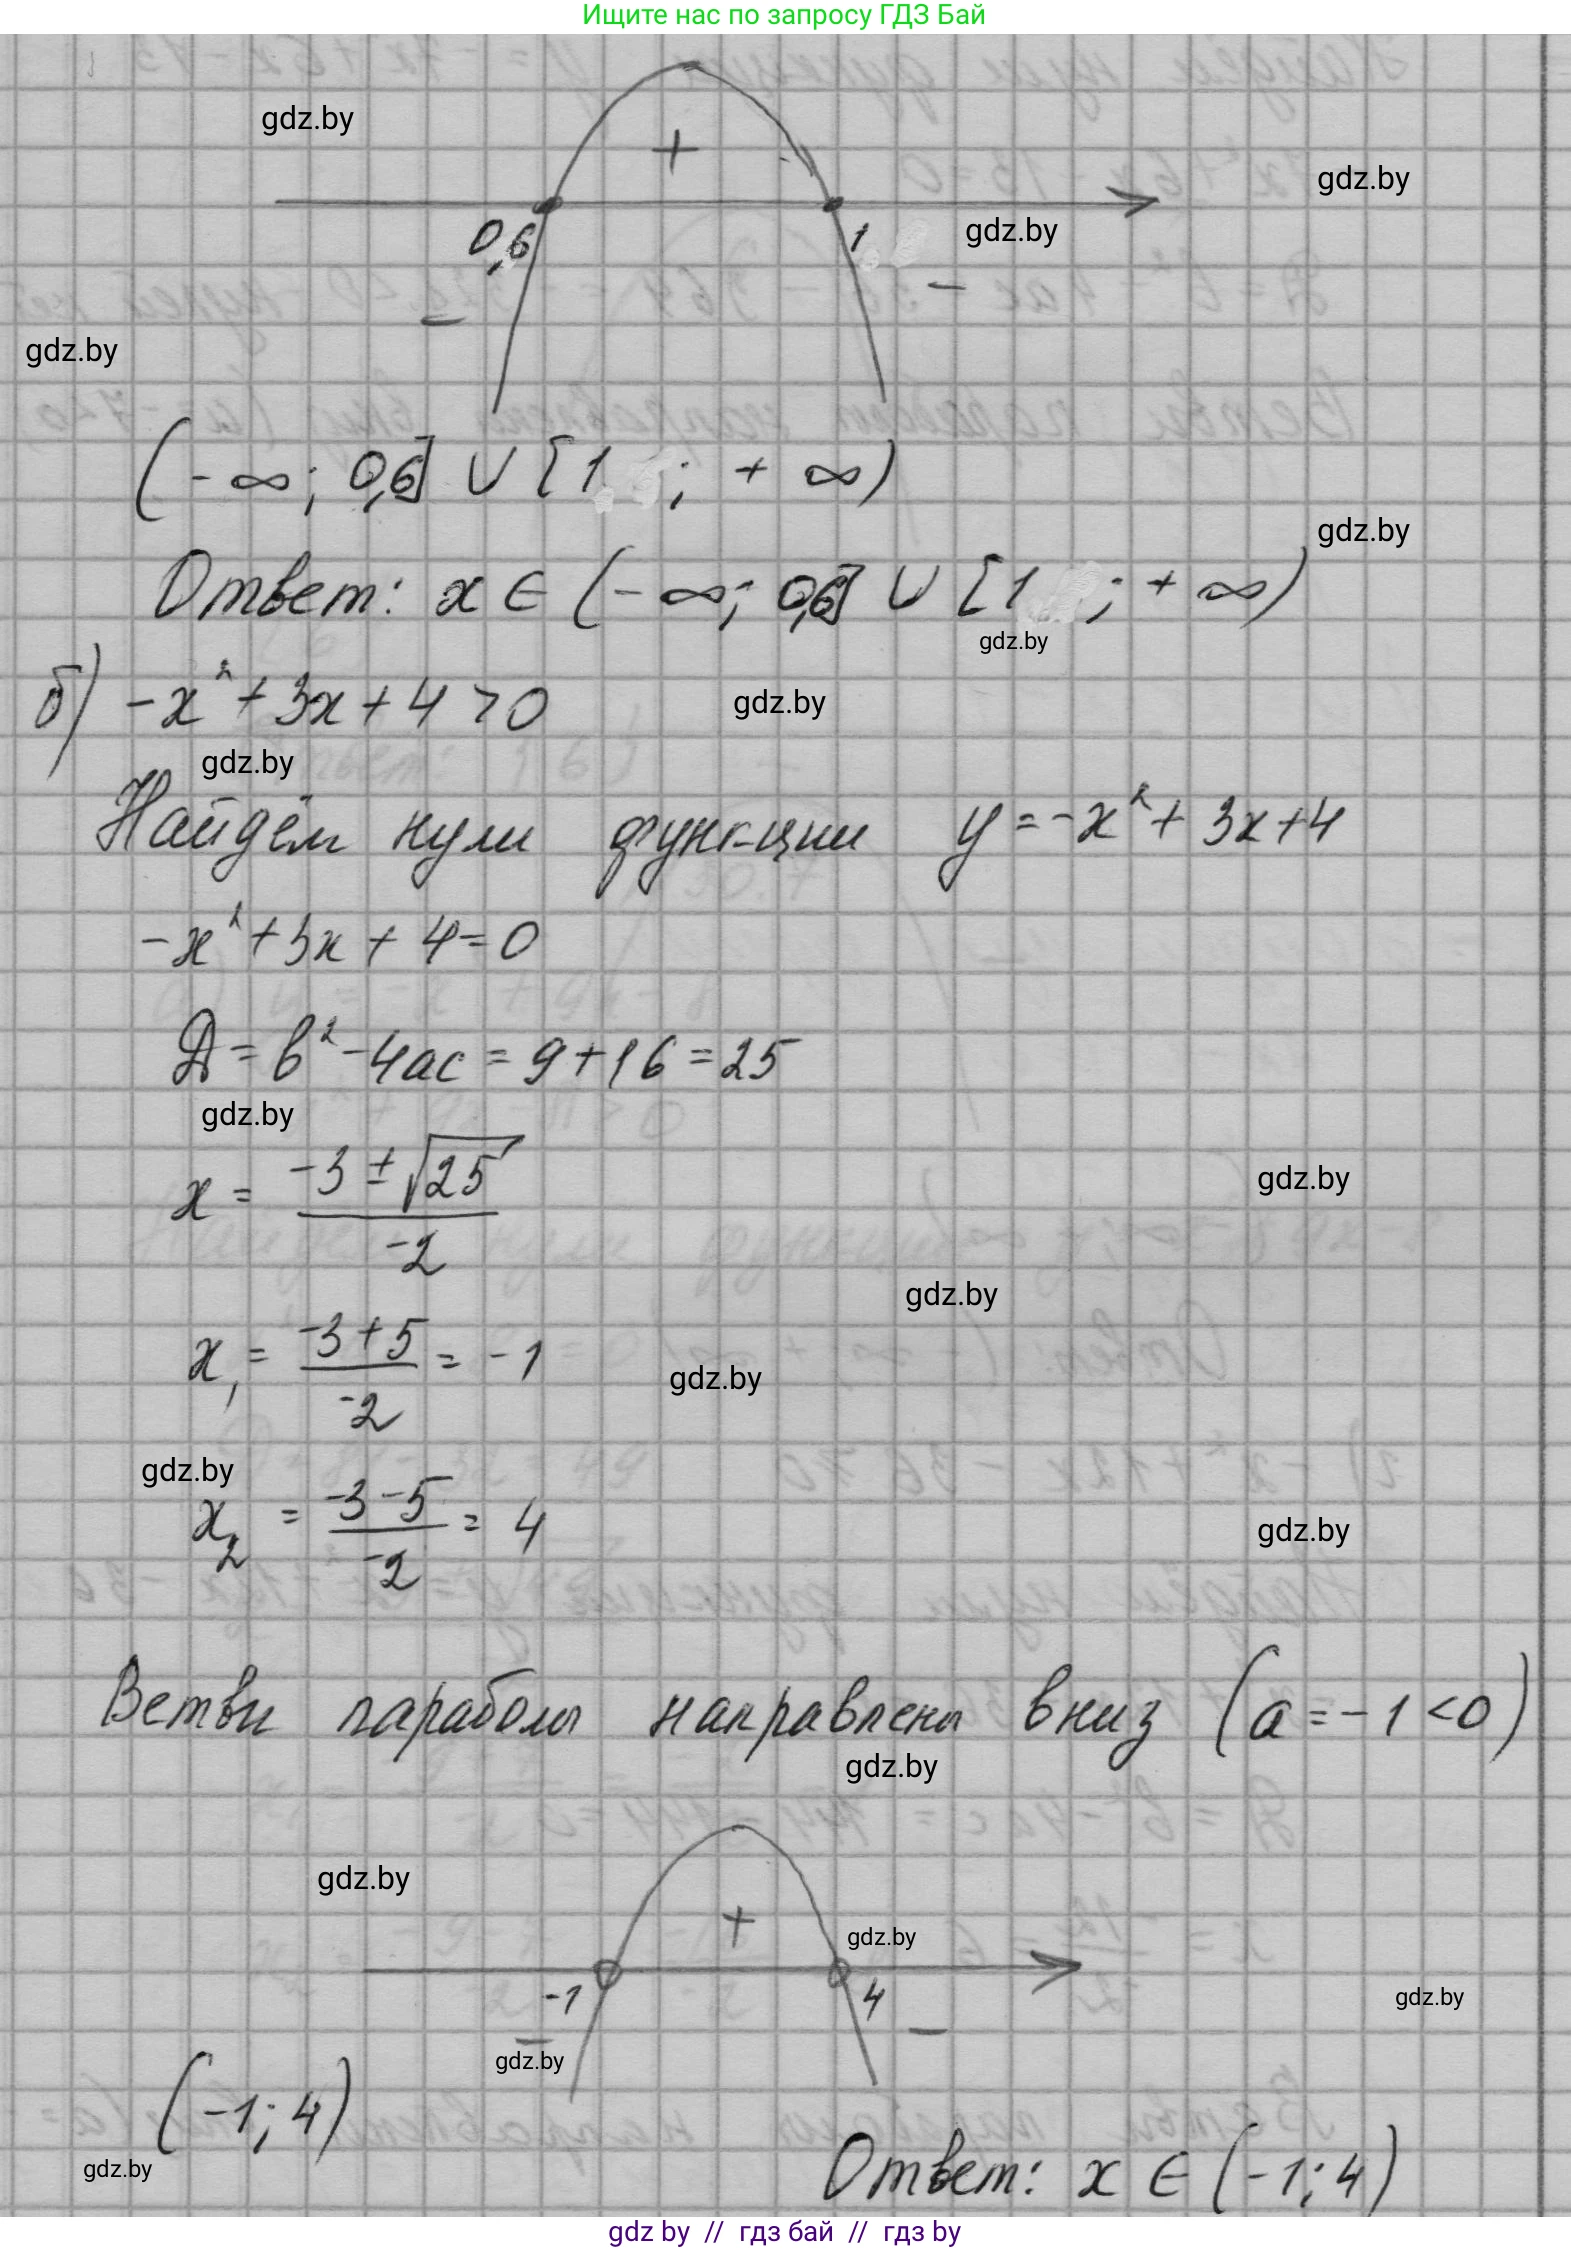 Ищите нас по запросу ГДЗ Бай
gdz.by
+
gdz.by
0,6
1
gdz.by
−
−
gdz.by
(-∞; 0,6] ∪ [1; +∞)
gdz.by
Ответ: x ∈ (-∞; 0,6] ∪ [1; +∞)
gdz.by
б) -x² + 3x + 4 > 0
gdz.by
gdz.by
Найдём нули функции y = -x² + 3x + 4
-x² + 3x + 4 = 0
Д = b² - 4ac = 9 + 16 = 25
gdz.by
x = \frac{-3 ± √25}{-2}
gdz.by
gdz.by
x₁ = \frac{-3 + 5}{-2} = -1
gdz.by
gdz.by
x₂ = \frac{-3 - 5}{-2} = 4
gdz.by
Ветви параболы направлены вниз (a = -1 < 0)
gdz.by
gdz.by
+
gdz.by
-1
4
gdz.by
−
−
gdz.by
(-1; 4)
gdz.by
Ответ: x ∈ (-1; 4)
gdz by // гдз бай // гдз by